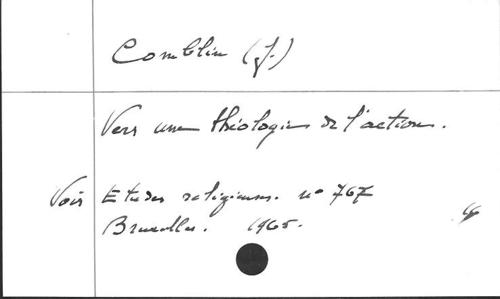 Comblin (J.)
Vers une théologie de l'action.
Voir Etudes religieuses. n° 767
Bruxelles. 1965.